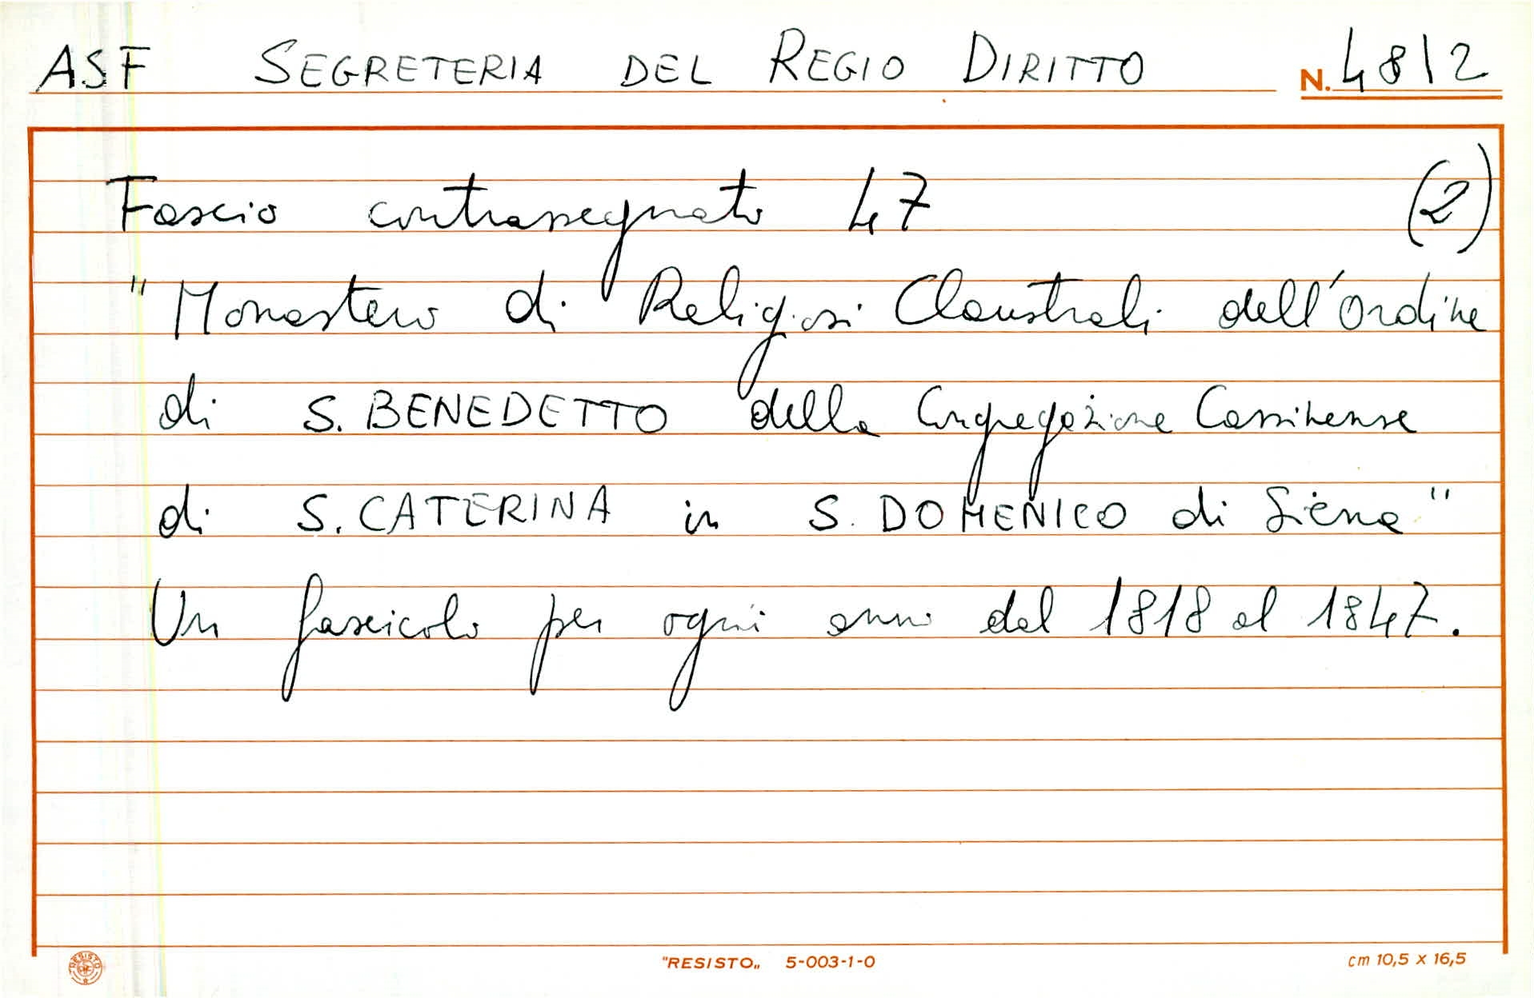 ASF SEGRETERIA DEL REGIO DIRITTO N. 4812
Fascio contrassegnato 47 (2)
"Monastero di Religiosi Claustrali dell'Ordine
di S. BENEDETTO della Congregazione Cassinense
di S. CATERINA in S. DOMENICO di Siena"
Un fascicolo per ogni anno dal 1818 al 1847.
RESISTO
"RESISTO„ 5-003-1-0 cm 10,5 x 16,5